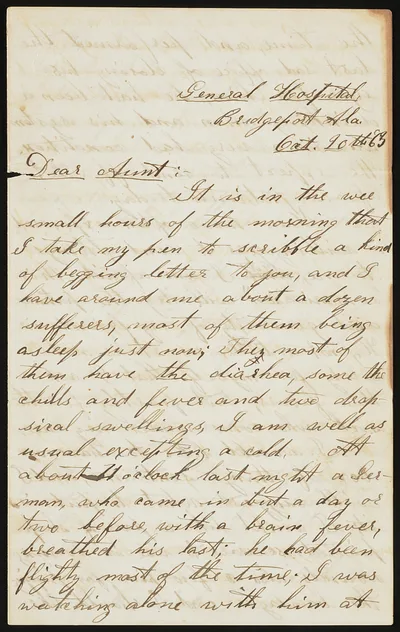 General Hospital,
Bridgeport Ala.
Oct. 20th 63
Dear Aunt :-
It is in the wee
small hours of the morning that
I take my pen to scribble a kind
of begging letter to you, and I
have around me about a dozen
sufferers, most of them being
asleep just now; They most of
them have the diarrhea some the
chills and fever and two drop
sical swellings, I am well as
usual excepting a cold. At
about 11 o'clock last night a Ger-
man, who came in but a day or
two before, with a brain fever,
breathed his last; he had been
flighty most of the time; I was
watching alone with him at